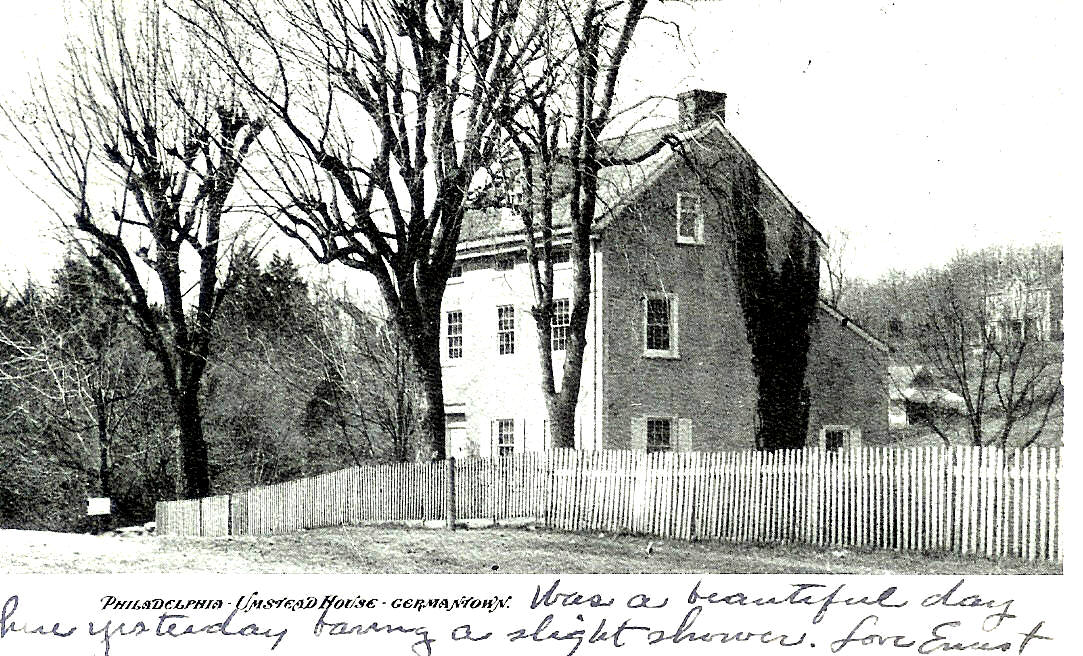 PHILADELPHIA - UMSTEAD HOUSE - GERMANTOWN. Was a beautiful day
here yesterday baring a slight shower. Love Ernest